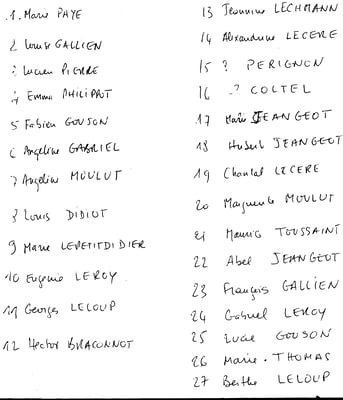 1. Marie PAYE
2 Louise GALLIEN
3 Lucien PIERRE
4 Emma PHILIPPOT
5 Fabien GOUSON
6 Angeline GABRIEL
7 Angeline MOULUT
8 Louis DIDIOT
9 Marie LEPETITDIDIER
10 Eugenie LEROY
11 Georges LELOUP
12 Hector BRACONNOT
13 Jeannine LECHMANN
14 Alexandrine LECERE
15 ? PERIGNON
16 ? COLTEL
17 Marie JEANGEOT
18 Hubert JEANGEOT
19 Chantal LECERE
20 Marguerite MOULUT
21 TOUSSAINT
22 Abel JEANGEOT
23 François GALLIEN
24 Gabriel LEROY
25 Lucie GOUSON
26 Marie. THOMAS
27 Berthe LELOUP